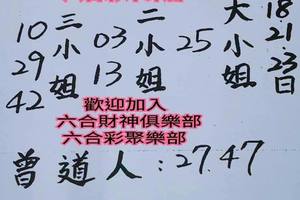 18.21.23日
大小姐
25
二小姐
03
13
三小姐
10
29
42
歡迎加入
六合財神俱樂部
六合彩聚樂部
曾道人:27.47